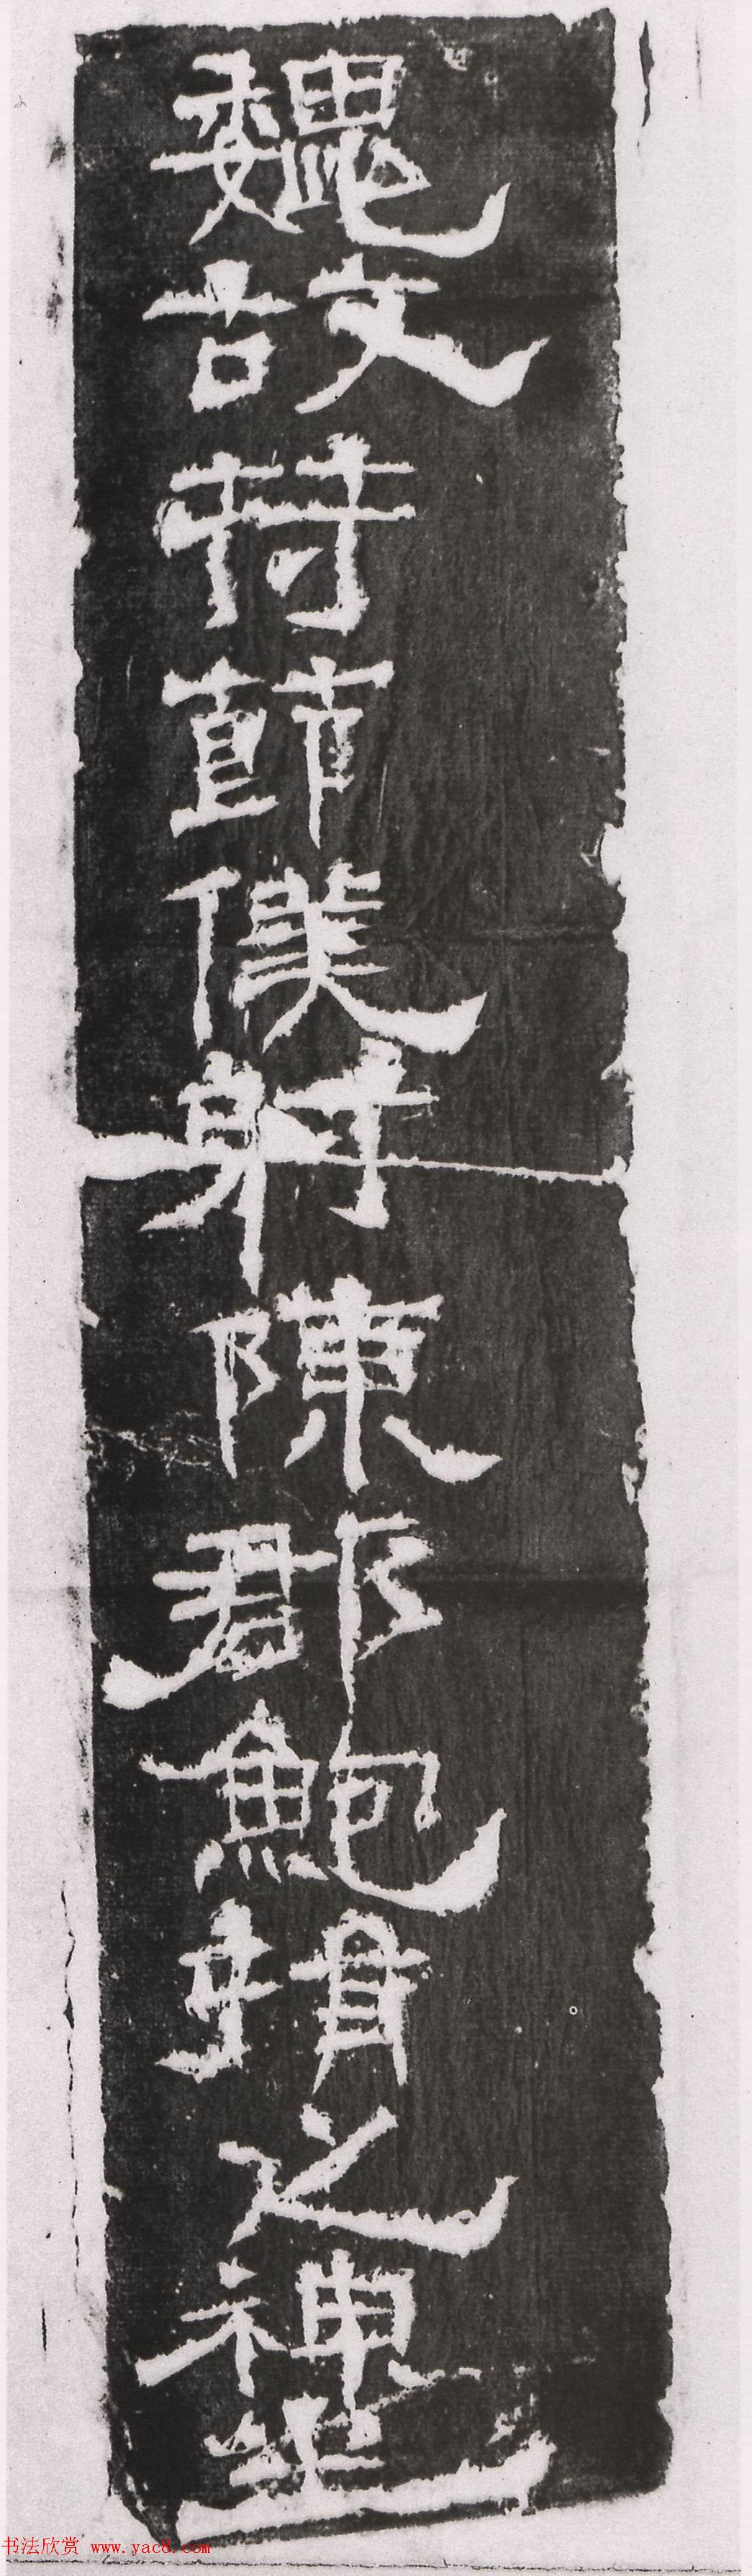 魏故持節僕射陳郡鮑捐之神坐
书法欣赏 www.yac8.com